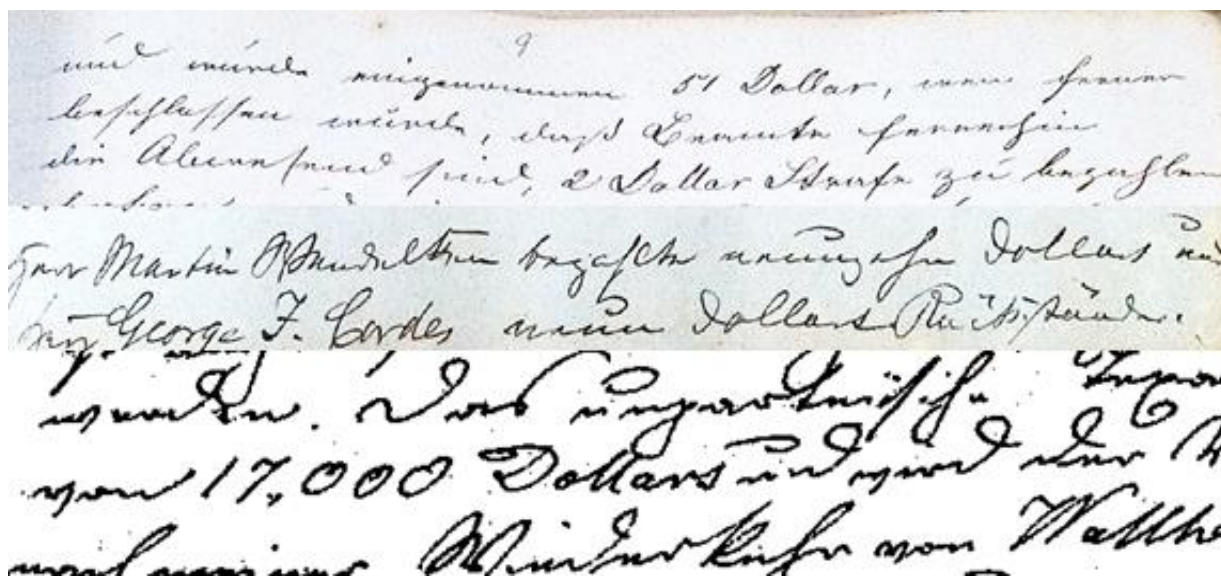 9
und wurde eingenommen 51 Dollar, wenn ferner
beschlossen wurde, daß Beamte fernerhin
die Abwesend sind, 2 Dollar Strafe zu bezahlen
Herr Martin bezahlte neunzehn Dollars und
George F. Cordes neun Dollars Rückstände.
werden. Das unparteiische
von 17,000 Dollars und wird der
nach meiner Wiederkehr von